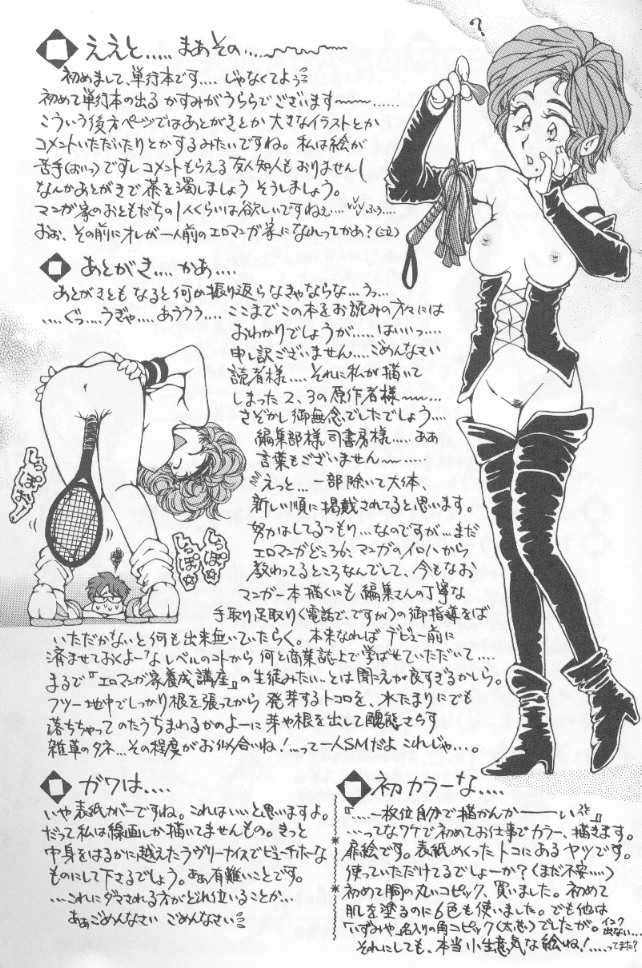 ええと.....まぁその....
初めまして、単行本です....じゃなくてよぅ
初めて単行本の出る かすみがうららでございます〜〜〜......
こういう後方ページではあとがきとか大きなイラストとか
コメントいただいたりとかするみたいですね。私は絵が
苦手(おいっ)ですしコメントもらえる友人知人もおりませんし
なんかあとがきで茶を濁しましょう そうしましょう。
マンガ家のおともだちの1人くらいは欲しいですねぇ...
おぉ、その前にオレが一人前のエロマンガ家になれってかあ?
あとがき....かぁ....
あとがきとも なると何か振り返らなきゃならな...うっ...
....ぐっ...うぎゃ....あううう....ここまでこの本をお読みの方々には
おわかりでしょうが.....はいいっ....
申し訳ございません....ごめんなさい
読者様....それに私が描いて
しまった2、3の原作者様〜〜....
さぞかし御無念でしたでしょう....
編集部様 司書房様.....ああ
言葉もございません〜〜......
えっと...一部除いて大体、
新しい順に掲載されてると思います。
努力はしてるつもり...なのですが...まだ
エロマンガどころか、マンガのイロハから
教わってるところなんでして、今もなお
マンガ一本描くにも編集さんの丁寧な
手取り足取り(電話で、ですが)の御指導をば
いただかないと何も出来無いていたらく。本来なれば デビュー前に
済ませておくよーなレベルのコトから 何と商業誌上で学ばせていただいて....
まるで『エロマンガ家養成講座』の生徒みたい...とは聞こえが良すぎるかしら。
フツー土地中でしっかり根を張ってから 発芽するトコロを、水たまりにでも
落ちちゃってのたうちまわるかのよーに芽や根を出して醜態さらす
雑草のタネ...その程度がお似合いね!...って一人SMだよ これじゃ...。
ガワは....
いや表紙カバーですね。これはいいと思いますよ。
だって私は線画しか描いてませんもの。きっと
中身をはるかに越えたラヴリーナイスでビューチホーな
ものにして下さるでしょう。あぁ有難いことです。
....これにダマされる方がどれ位いることか...
あぁごめんなさい ごめんなさい
初カラーな....
『....一枚位自分で描かんか――い』
...ってなワケで初めてお仕事でカラー、描きます。
扉絵です。表紙めくったトコにあるヤツです。
使っていただけてるでしょーか?(まだ不安....)
初めて胸の丸いコピック、買いました。初めて
肌を塗るのに6色も使いました。でも他は
「いずみや」名入りの角コピックでしたが。インク出ない...
それにしても、本当小生意気な絵ね!....ってまた?
?
しっぽ
しっぽ☆
しっぽ☆